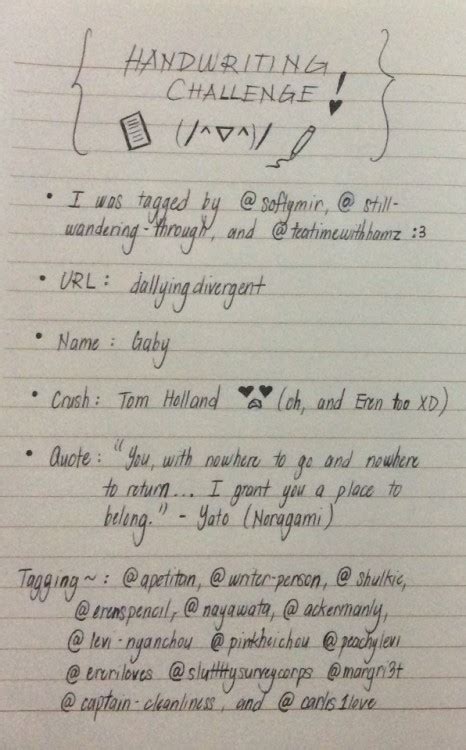 HANDWRITING
CHALLENGE!
(/^▽^)/
• I was tagged by @softymin, @still-
wandering-through, and @teatimewithhamz :3
• URL: dallyingdivergent
• Name: Gaby
• Crush: Tom Holland (oh, and Eren too XD)
• Quote: "You, with nowhere to go and nowhere
to return... I grant you a place to
belong." - Yato (Noragami)
Tagging~: @apetitan, @writer-person, @shulkie,
@erenspencil, @nayawata, @ackermanly,
@levi-nganchou @pinkheichou @peachylevi
@ereriloves @sluttttysurveycorps @margri3t
@captain-cleanliness, and @carlrs1love